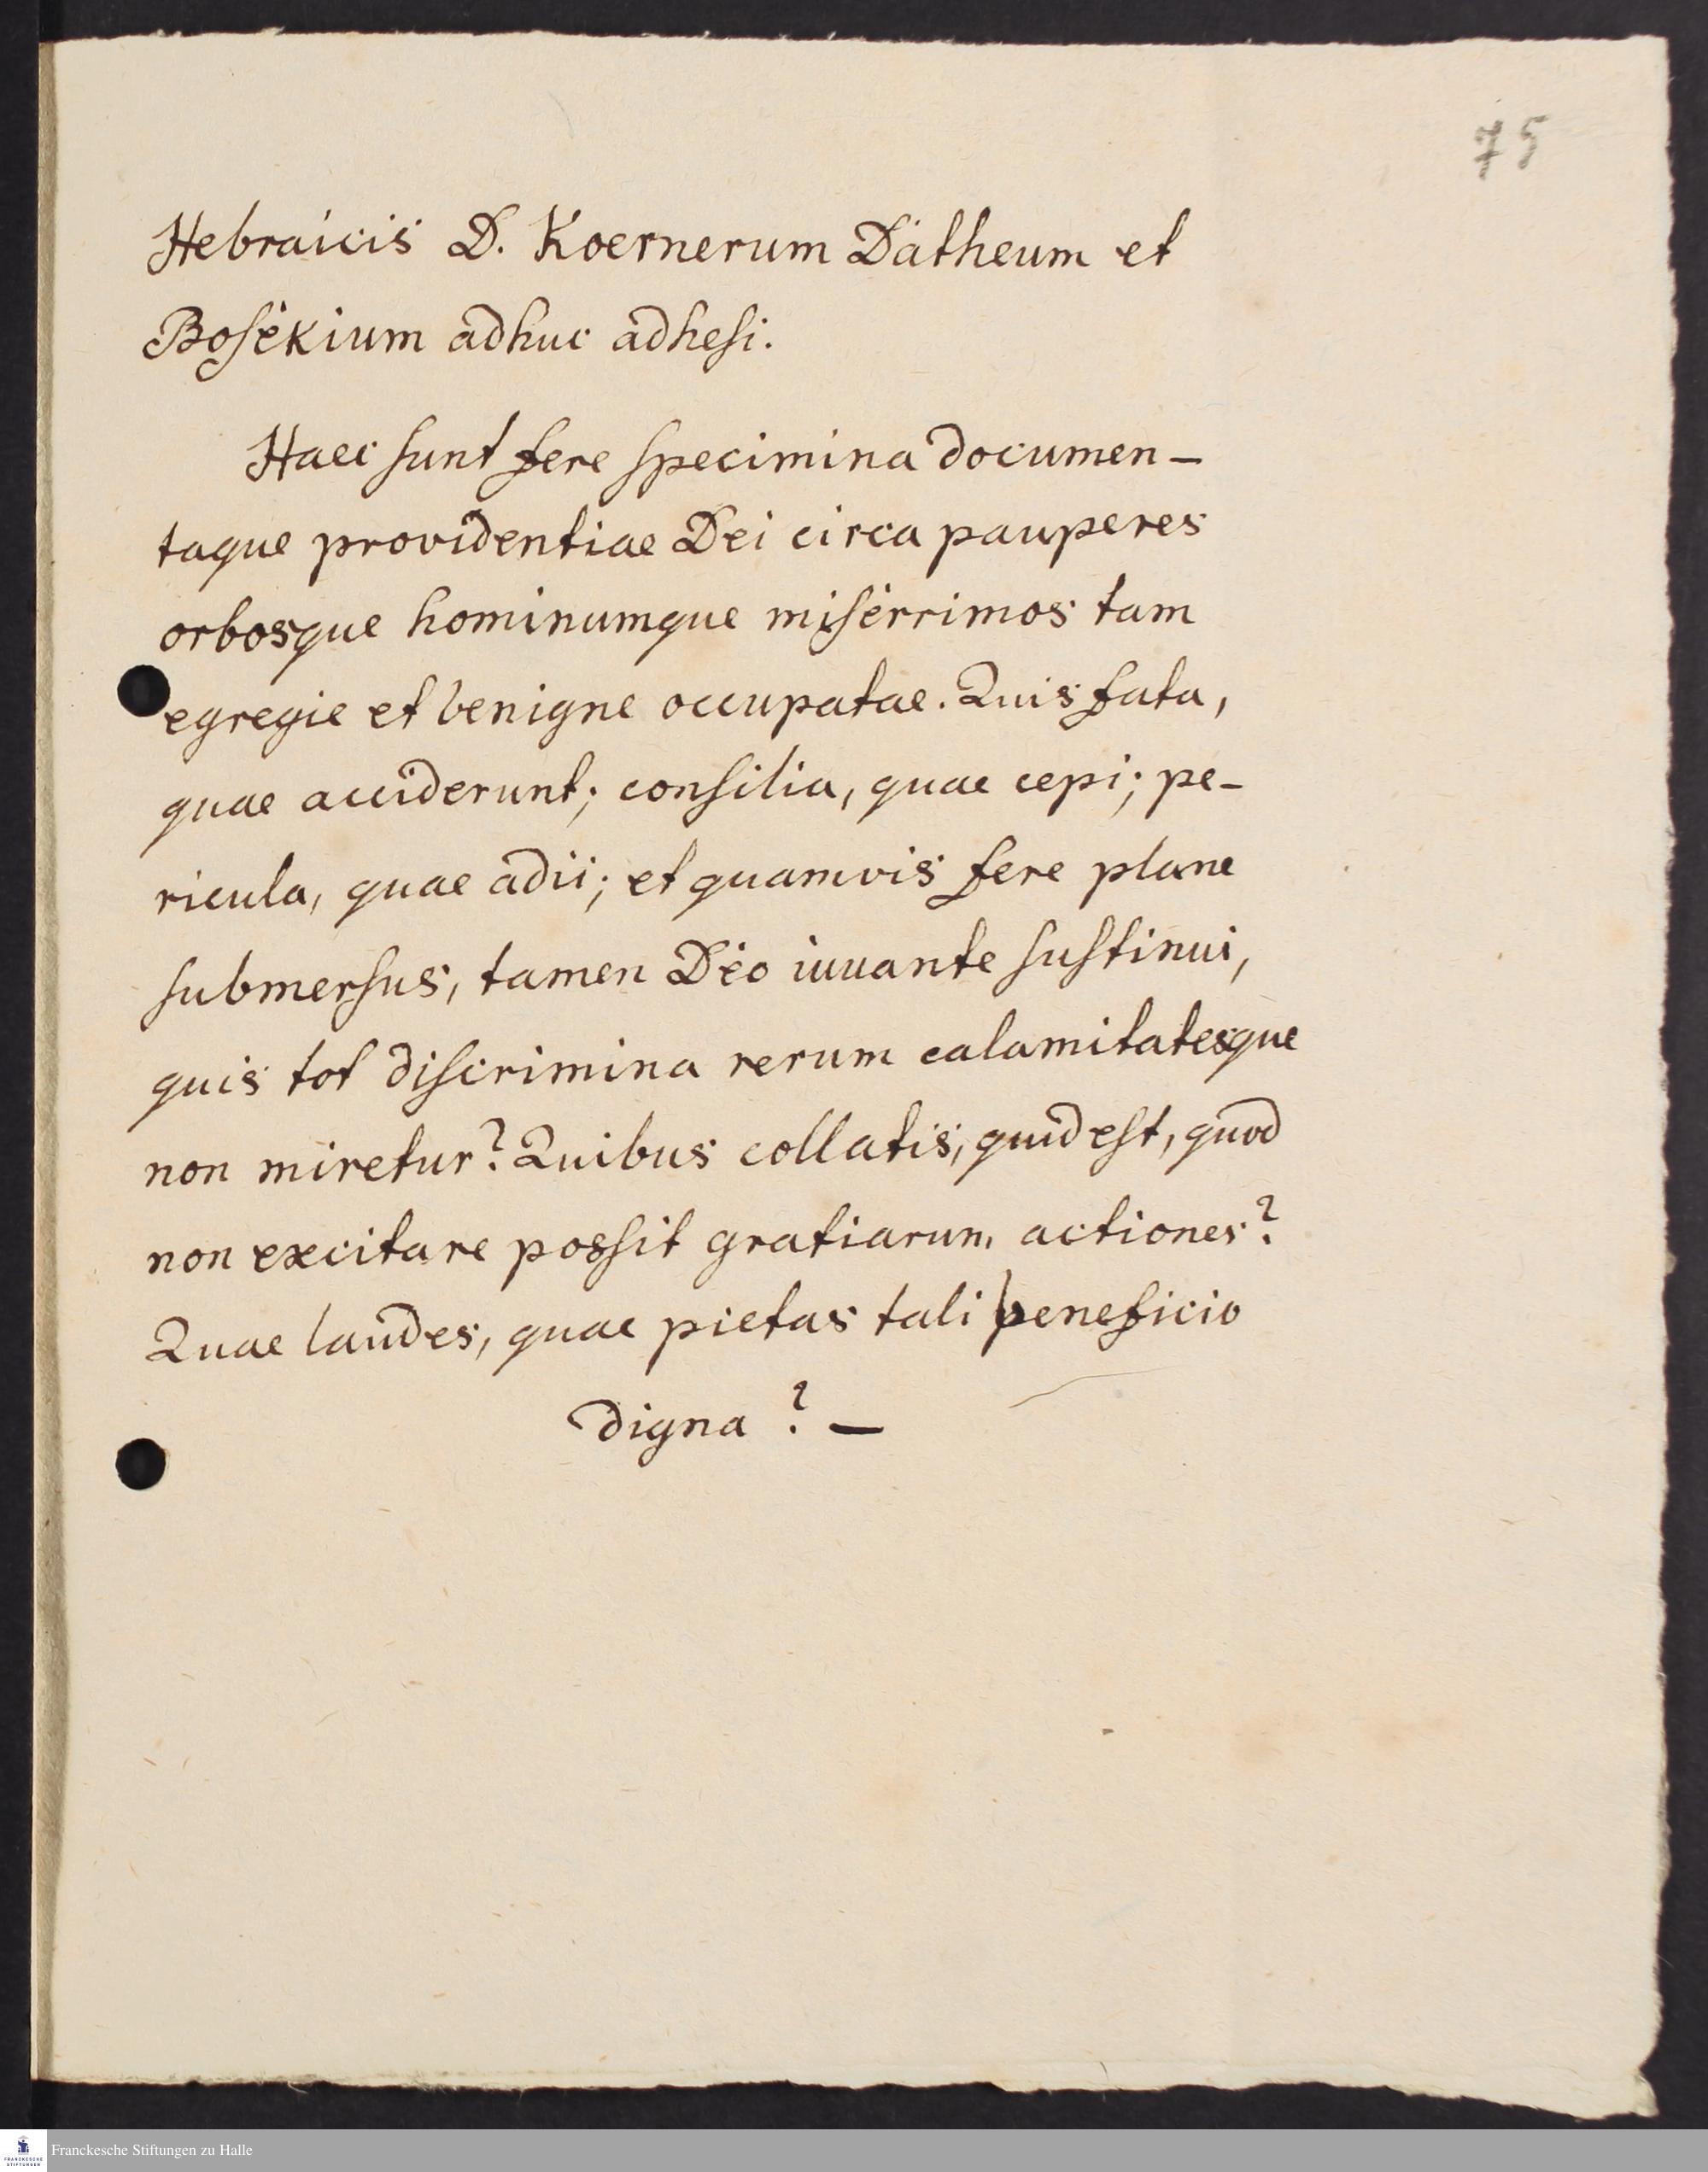 75
Hebraicis D. Koernerum Datheum et
Bosekium adhuc adhesi.
Haec sunt fere specimina documen-
taque providentiae Dei circa pauperes
orbosque hominumque miserrimos tam
egregie et benigne occupatae. Quis fata,
quae acciderunt; consilia, quae cepi; pe-
ricula, quae adii; et quamvis fere plane
submersus, tamen Deo iuuante sustinui,
quis tot discrimina rerum calamitatesque
non miretur? Quibus collatis, quid est, quod
non excitare possit gratiarum actiones?
Quae laudes, quae pietas tali beneficio
digna? -
FRANCKESCHE
STIFTUNGEN
Franckesche Stiftungen zu Halle